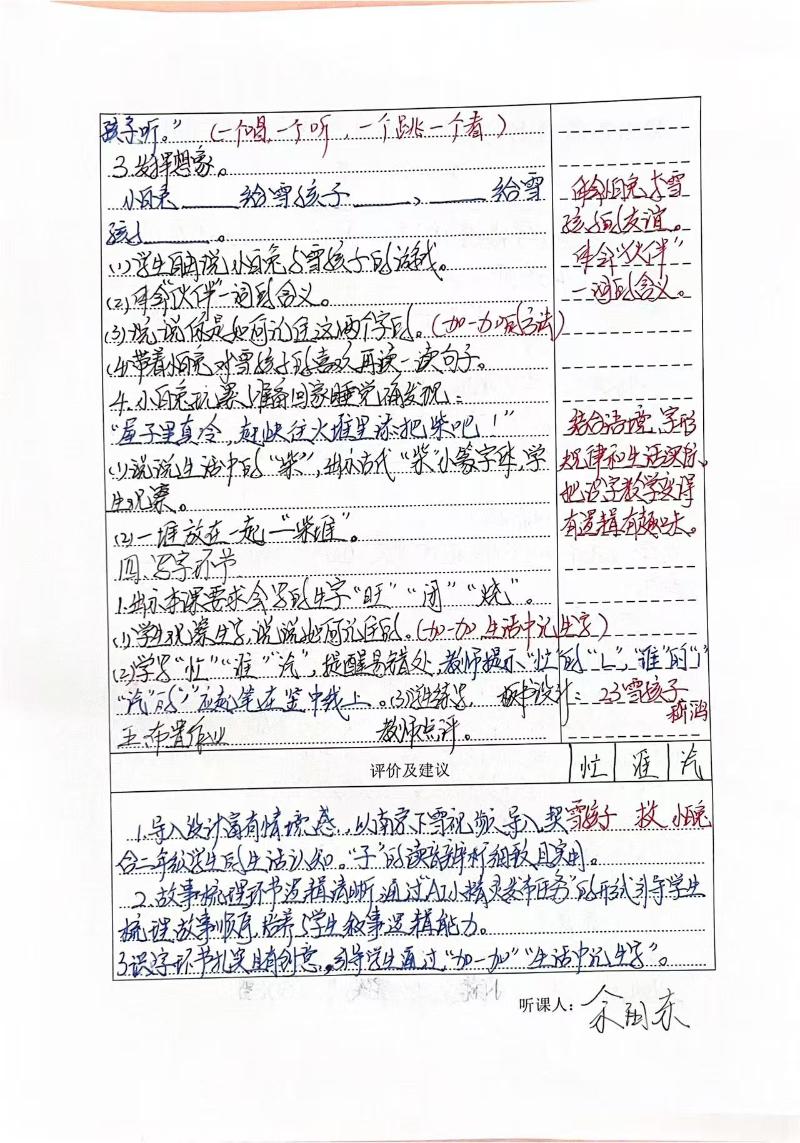 孩子听。”(一个唱一个听,一个跳一个看)
3.发挥想象。
小白兔____给雪孩子____,____给雪
孩子____。
(1)学生自由说小白兔与雪孩子的游戏。
(2)体会“伙伴”一词的含义。
(3)说说你是如何记住这两个字的。(加一加的方法)
(4)带着小白兔对雪孩子的喜欢再读一读句子。
4.小白兔玩累了准备回家睡觉确发现:
“屋子里真冷,赶快往火堆里添把柴吧!”
(1)说说生活中的“柴”,出示古代“柴”小篆字体,学
生观察。
(2)一堆放在一起—“柴堆”。
四、写字环节
1.出示本课要求会写的生字“旺”“闭”“烧”。
(1)学生观察生字,说说如何记住的。(加一加 生活中记生字)
(2)学写“忙”“谁”“汽”,提醒易错处,教师提示“忙的“乚”,“谁”的“丿”
“汽”的 应起笔在竖中线上。(3)学生练字, 板书设计: 23雪孩子
五.布置作业 教师点评。
体会小白兔与雪
孩子的友谊。
体会“伙伴”
一词的含义。
结合语境,字形
规律和生活识字,
把识字教学变得
有逻辑有趣味。
评价及建议 忙 谁 汽
1.导入设计富有情境感,以南京下雪视频导入,契
雪孩子 救 小白兔
合二年级学生的生活认知。“子”的读音辨析细致且实用。
2.故事梳理环节逻辑清晰通过“AI小精灵发布任务”的形式引导学生
梳理故事顺序,培养了学生叙事逻辑能力。
3.识字环节扎实且有创意,引导学生通过“加一加”“生活中记生字”。
听课人: